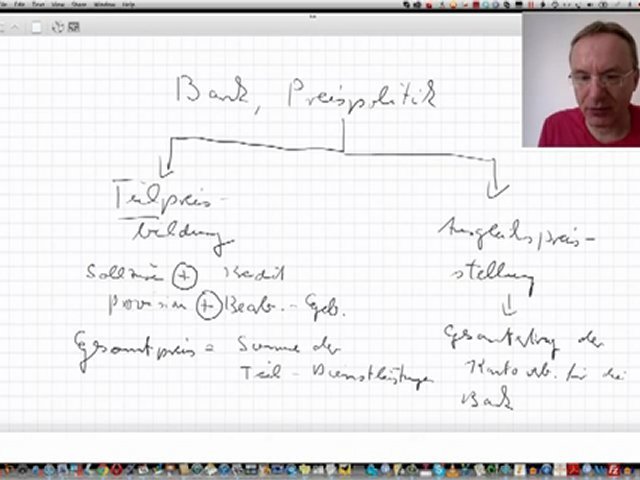 Bank, Preispolitik
Teilpreis-
bildung
Sollzins + Kredit
provision + Bearb.-Geb.
Gesamtpreis = Summe der
Teil-Dienstleistungen
Ausgleichspreis-
stellung
Gesamtertrag der
Kontoverb. für die
Bank